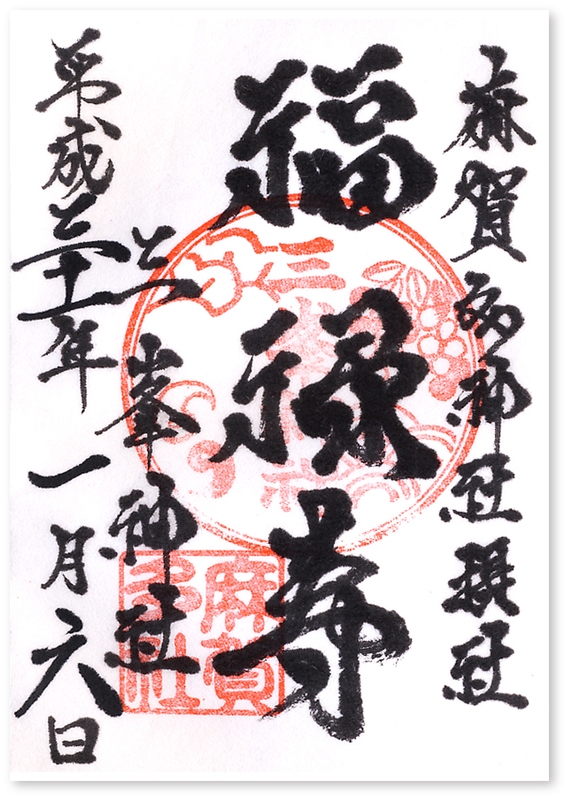 麻賀多神社撰社
福禄寿
三峯神社
平成三十一年一月六日
麻賀
多社